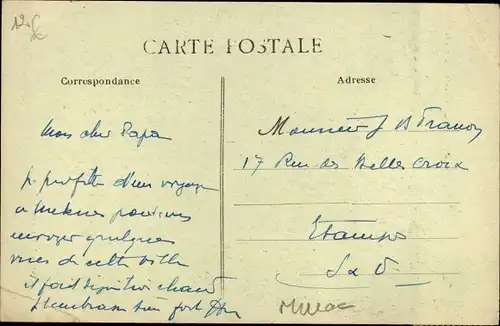 CARTE POSTALE
Correspondance
Adresse
Mon cher Papa
je profite d'un voyage
a Meknes pour vous
envoyer quelques
vues de cette ville
il fait
chaud
je t'embrasse bien fort
Monsieur J B Franon
17 Rue des Belles Croix
Etampes
S & O
Maroc